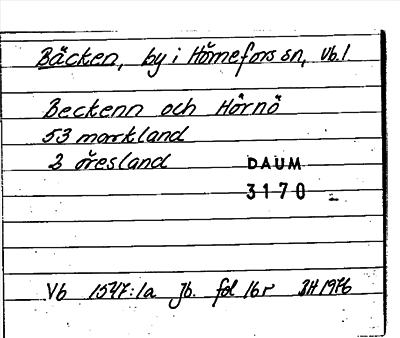 Bäcken, by i Hörnefors sn, Vb.l
Beckenn och Hörnö
53 markland
2 öresland
DAUM
3170
Vb 1547:1a Jb. fol 16r BH 1976